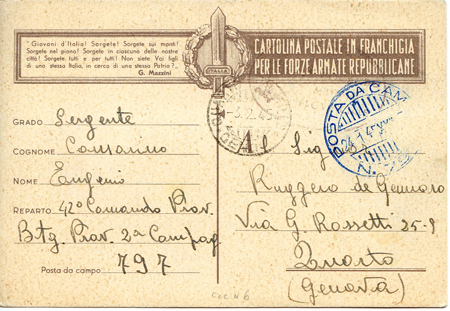 "Giovani d'Italia! Sorgete! Sorgete sui monti!
Sorgete nel piano! Sorgete in ciascuno delle nostre
città! Sorgete tutti e per tutti! Non siete Voi figli
di una stessa Italia, in cerca di una stessa Patria?„
G. Mazzini
ITALIA
CARTOLINA POSTALE IN FRANCHIGIA
PER LE FORZE ARMATE REPUBBLICANE
-3.2.45
POSTA DA CAM
GRADO Sergente
COGNOME
NOME Eugenio
REPARTO 42° Comando Prov.
Btg. Prov. 2a Compag
Posta da campo 797
Al Sig
Ruggero de Gennaro
Via G. Rossetti 25-9
Quarto
(Genova)